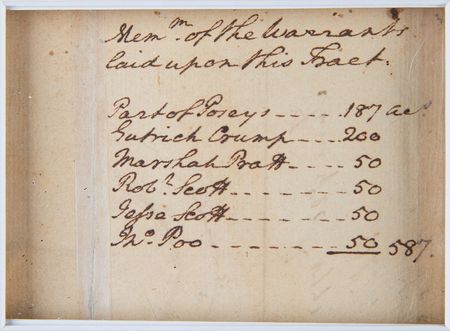 Mem.m of the Warrants
laid upon this Tract.
Part of Poseys ---- 187 acs
Gutrich Crump ---- 200
Marshal Pratt ---- 50
Robt. Scott ------ 50
Jesse Scott ------ 50
Tho. Poo --------- 50 587.